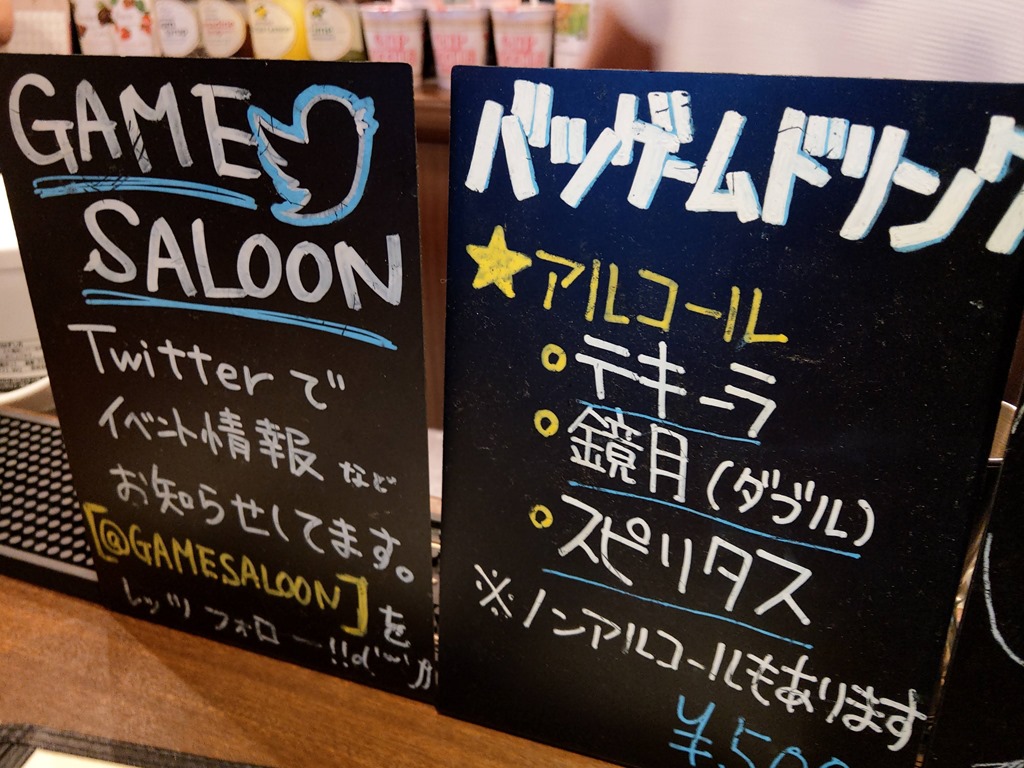 GAME
SALOON
Twitterで
イベント情報など
お知らせしてます。
[@GAMESALOON]を
レッツフォロー!!
バツゲームドリンク
★アルコール
○テキーラ
○鏡月(ダブル)
○スピリタス
※ノンアルコールもあります
¥500